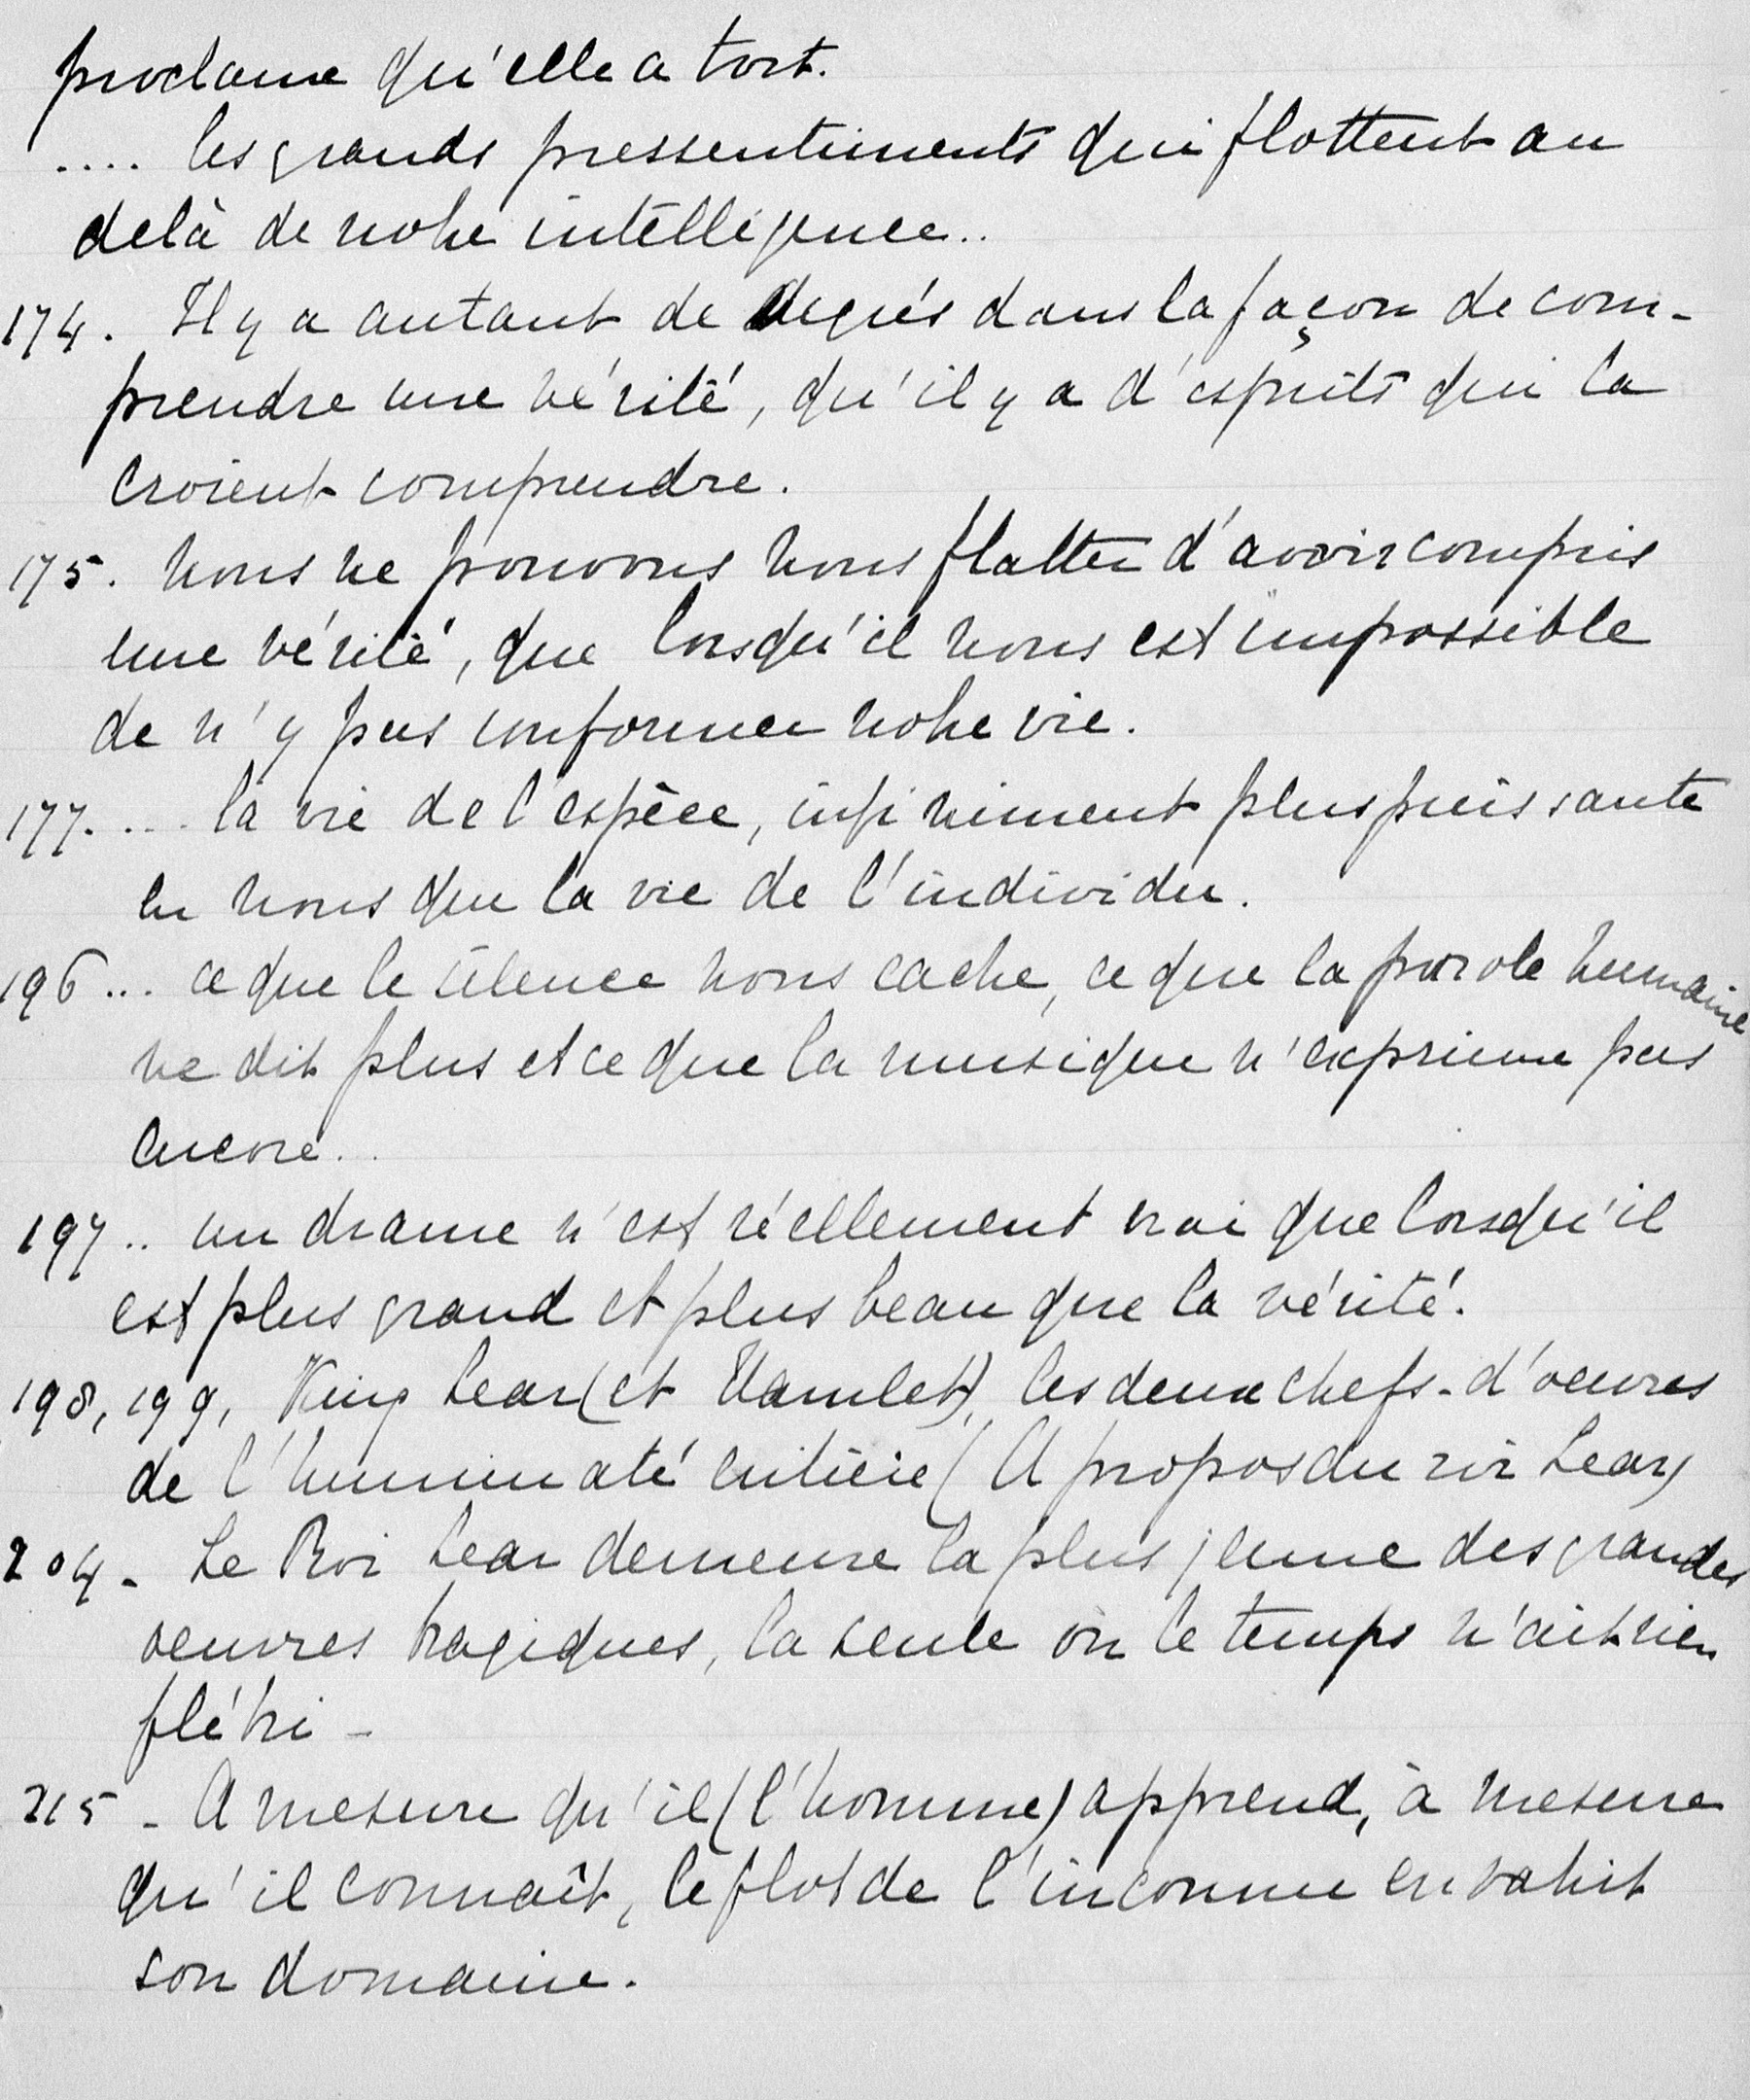 proclame qu'elle a tort.
.... les grands pressentiments qui flottent au
delà de notre intelligence..
174. Il y a autant de degrés dans la façon de com-
prendre une vérité, qu'il y a d'esprits qui la
croient comprendre.
175. Nous ne pouvons nous flatter d'avoir compris
une vérité, que lorsqu'il nous est impossible
de n'y pas conformer notre vie.
177. ... la vie de l'espèce, infiniment plus puissante
en nous que la vie de l'individu.
196 ... ce que le silence nous cache, ce que la parole humaine
ne dit plus et ce que la musique n'exprime pas
encore...
197 .. un drame n'est réellement vrai que lorsqu'il
est plus grand et plus beau que la vérité.
198, 199, King Lear (et Hamlet), les deux chefs-d'oeuvres
de l'humimaté entière (A propos du roi Lear)
204 - Le Roi Lear demeure la plus jeune des grandes
oeuvres tragiques, la seule où le temps n'ait rien
flétri -
215 - A mesure qu'il (l'homme) apprend, à mesure
qu'il connaît, le flot de l'inconnu envahit
son domaine.